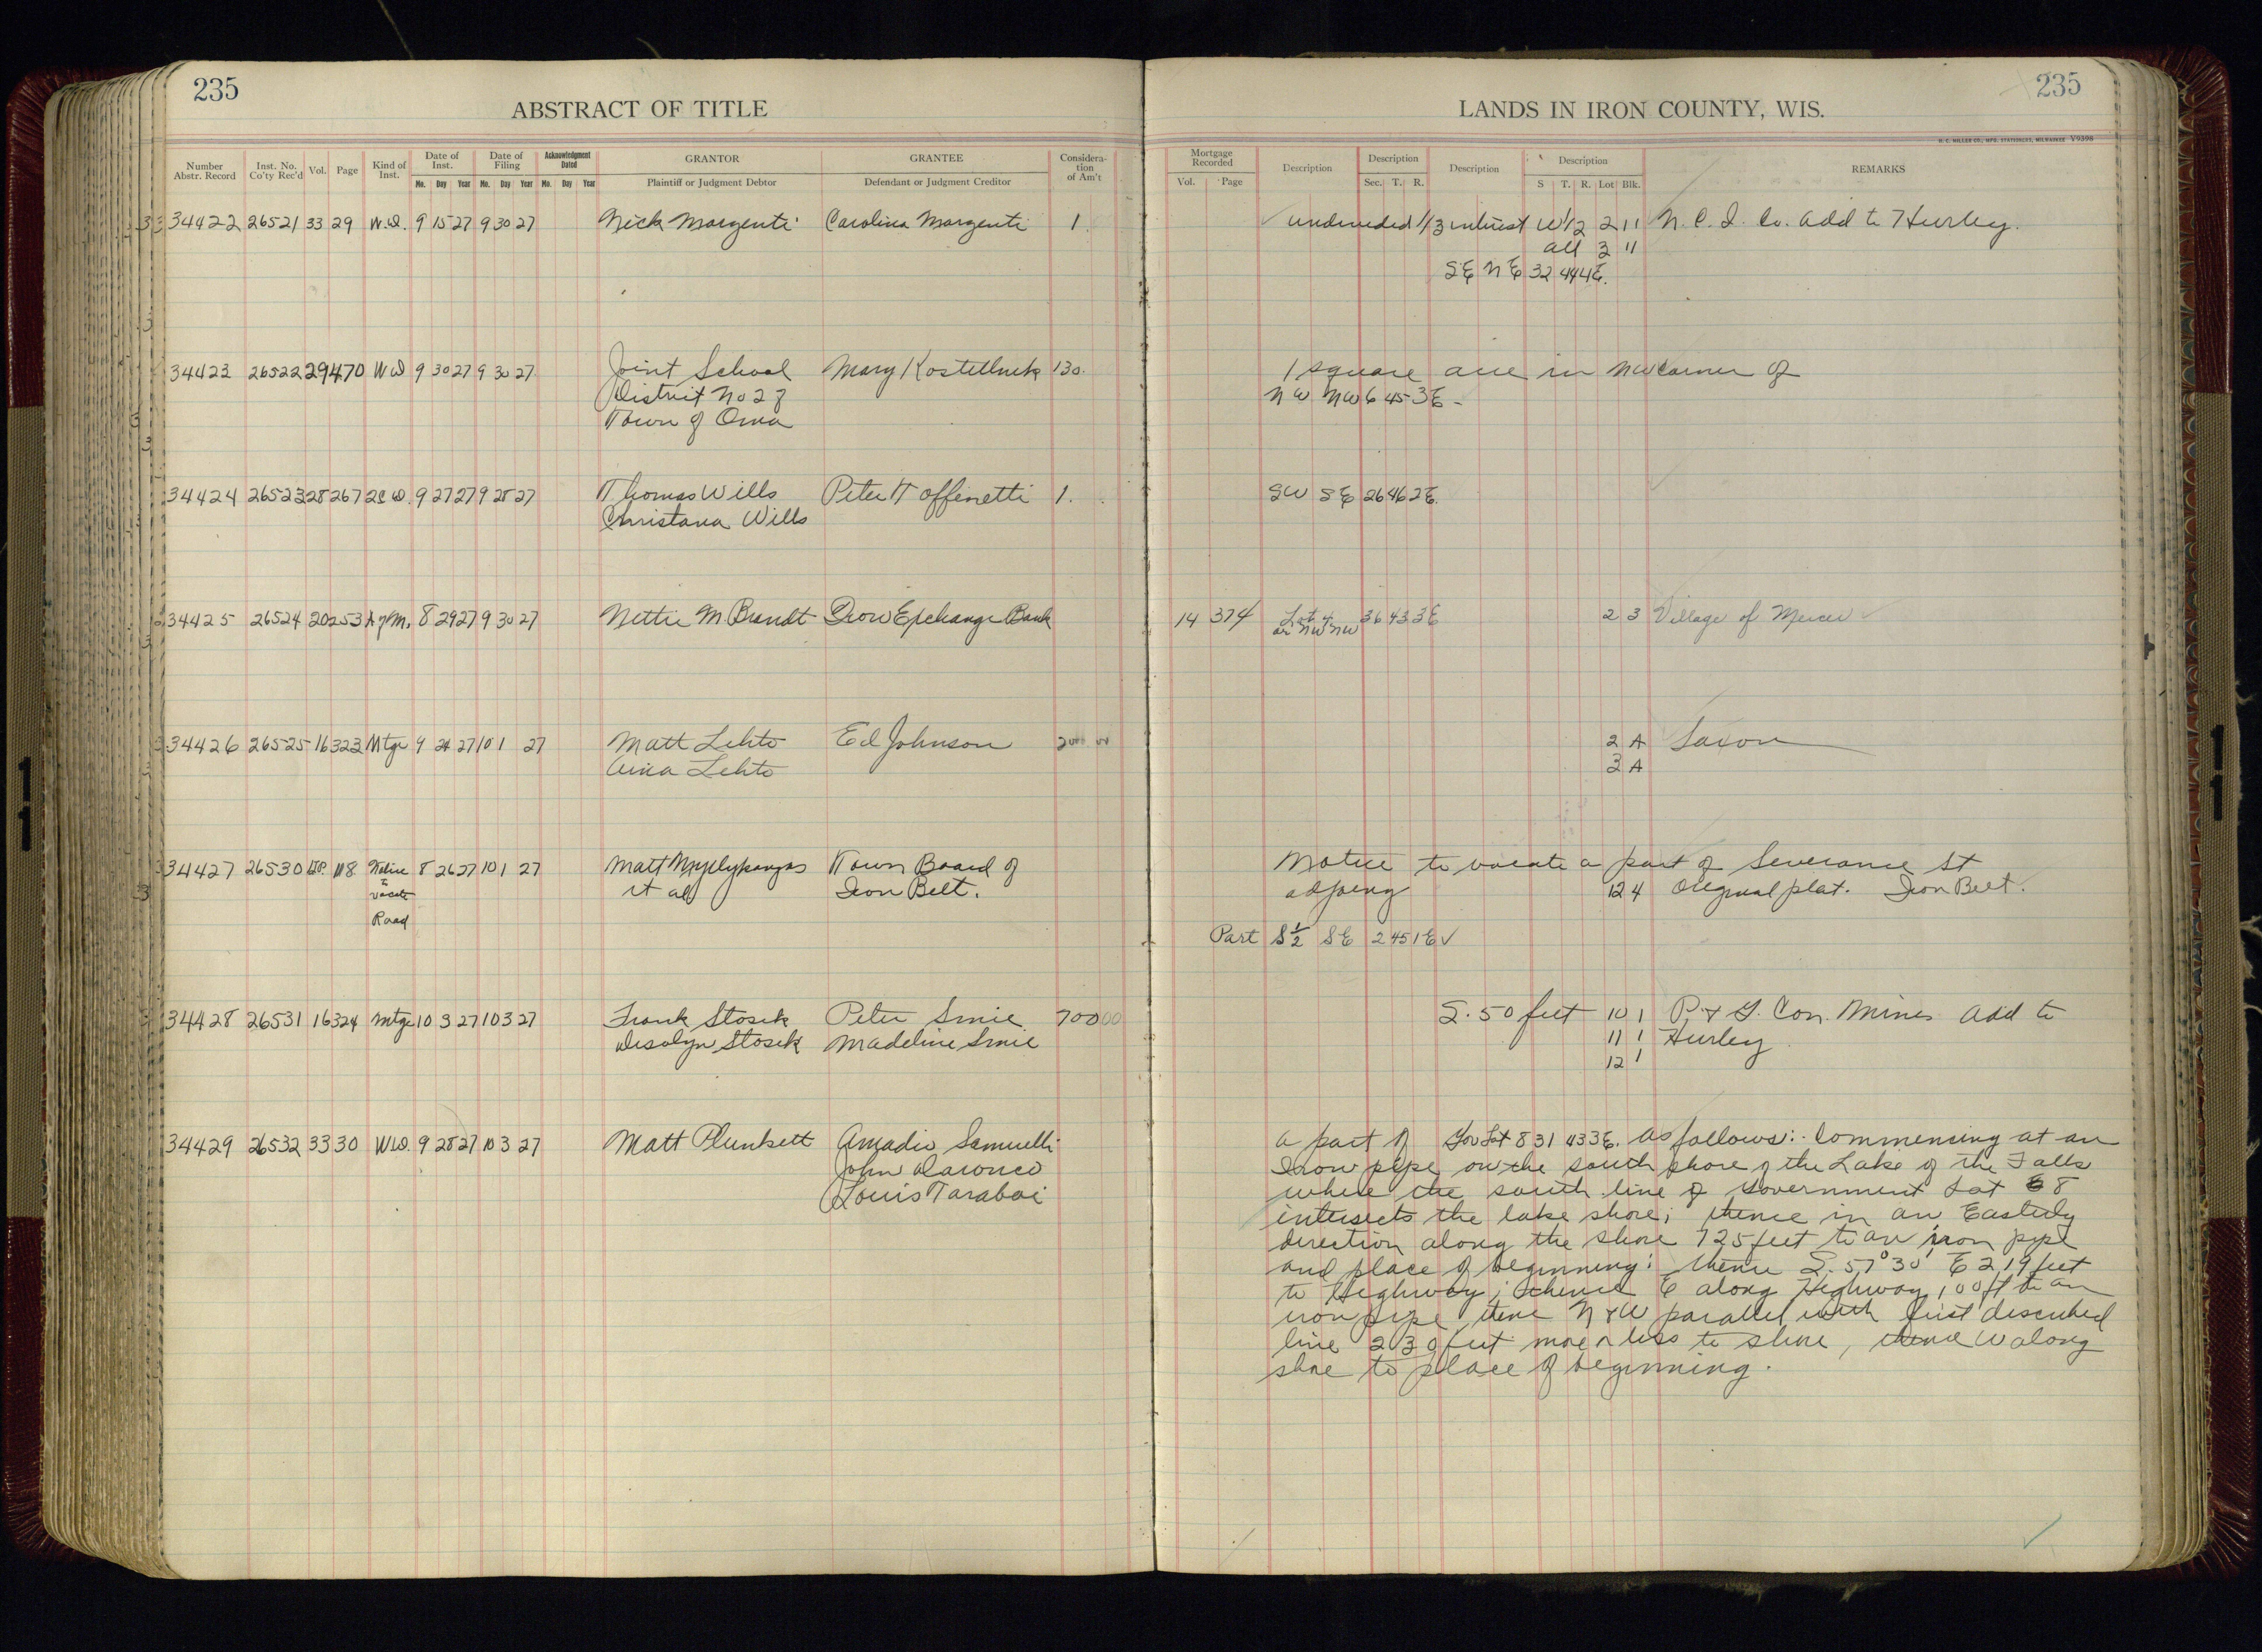 235
235
ABSTRACT OF TITLE
LANDS IN IRON COUNTY, WIS.
H. C. MILLER CO., MFG. STATIONERS, MILWAUKEE V9398
Number Abstr. Record Inst. No. Co'ty Rec'd Vol. Page Kind of Inst. Date of Inst. Date of Filing Acknowledgment Dated GRANTOR GRANTEE Consideration of Am't
Mo. Day Year Mo. Day Year Mo. Day Year Plaintiff or Judgment Debtor Defendant or Judgment Creditor
Mortgage Recorded Description Description Description Description REMARKS
Vol. Page Sec. T. R. S T. R. Lot Blk.
34422 26521 33 29 W.D. 9 15 27 9 30 27 Nick Margenti Carolina Margenti 1. undivided 1/3 interest W1/2 2 11 N. C. I. Co. Add to Hurley.
all 3 11
SE NE 32 44 4E.
34423 26522 29 470 WD 9 30 27 9 30 27 Joint School Mary Kostellnik 130. 1 square acre in NW corner of
District No 2 of NW NW 6 45 3E
Town of Oma
34424 26523 28 267 2CW. 9 27 27 9 28 27 Thomas Wills Peter Toffenetti 1. SW SE 26 46 2E.
Christana Wills
34425 26524 20 253 A of M. 8 29 27 9 30 27 Nettie M. Brandt Iron Exchange Bank 14 374 Lot 4 36 43 3E 2 3 Village of Mercer
or NW NW
34426 26525 16 323 Mtge 9 24 27 10 1 27 Matt Lehto Ed Johnson 2 A Saxon
Aina Lehto 3 A
34427 26530 118 Notice 8 26 27 10 1 27 Matt Town Board of Notice to vacate a part of Severance St
to et al Iron Belt. adjoing 12 4 Original plat. Iron Belt.
vacate
Road
Part S 1/2 SE 2 45 1E ✓
34428 26531 16 324 Mtge 10 3 27 10 3 27 Frank Stosek Peter Smie 700 00 S. 50 feet 10 1 P. & G. Con. Mines Add to
Stosek Madeline Smie 11 1 Hurley
12 1
34429 26532 33 30 WD. 9 28 27 10 3 27 Matt Plunkett Amadio Samuelli a part of Gov Lot 8 31 43 3E. as follows: Commencing at an
John Daronco Iron pipe on the south shore of the Lake of the Falls
Louis Taraboi where the south line of Government Lot 8
intersects the lake shore; thence in an Easterly
direction along the shore 725 feet to an iron pipe
and place of beginning: thence S. 57° 30' E 219 feet
to Highway; thence E along Highway 100 ft to an
iron pipe, thence N & W parallel with first described
line 230 feet more or less to shore, thence W along
shore to place of beginning.